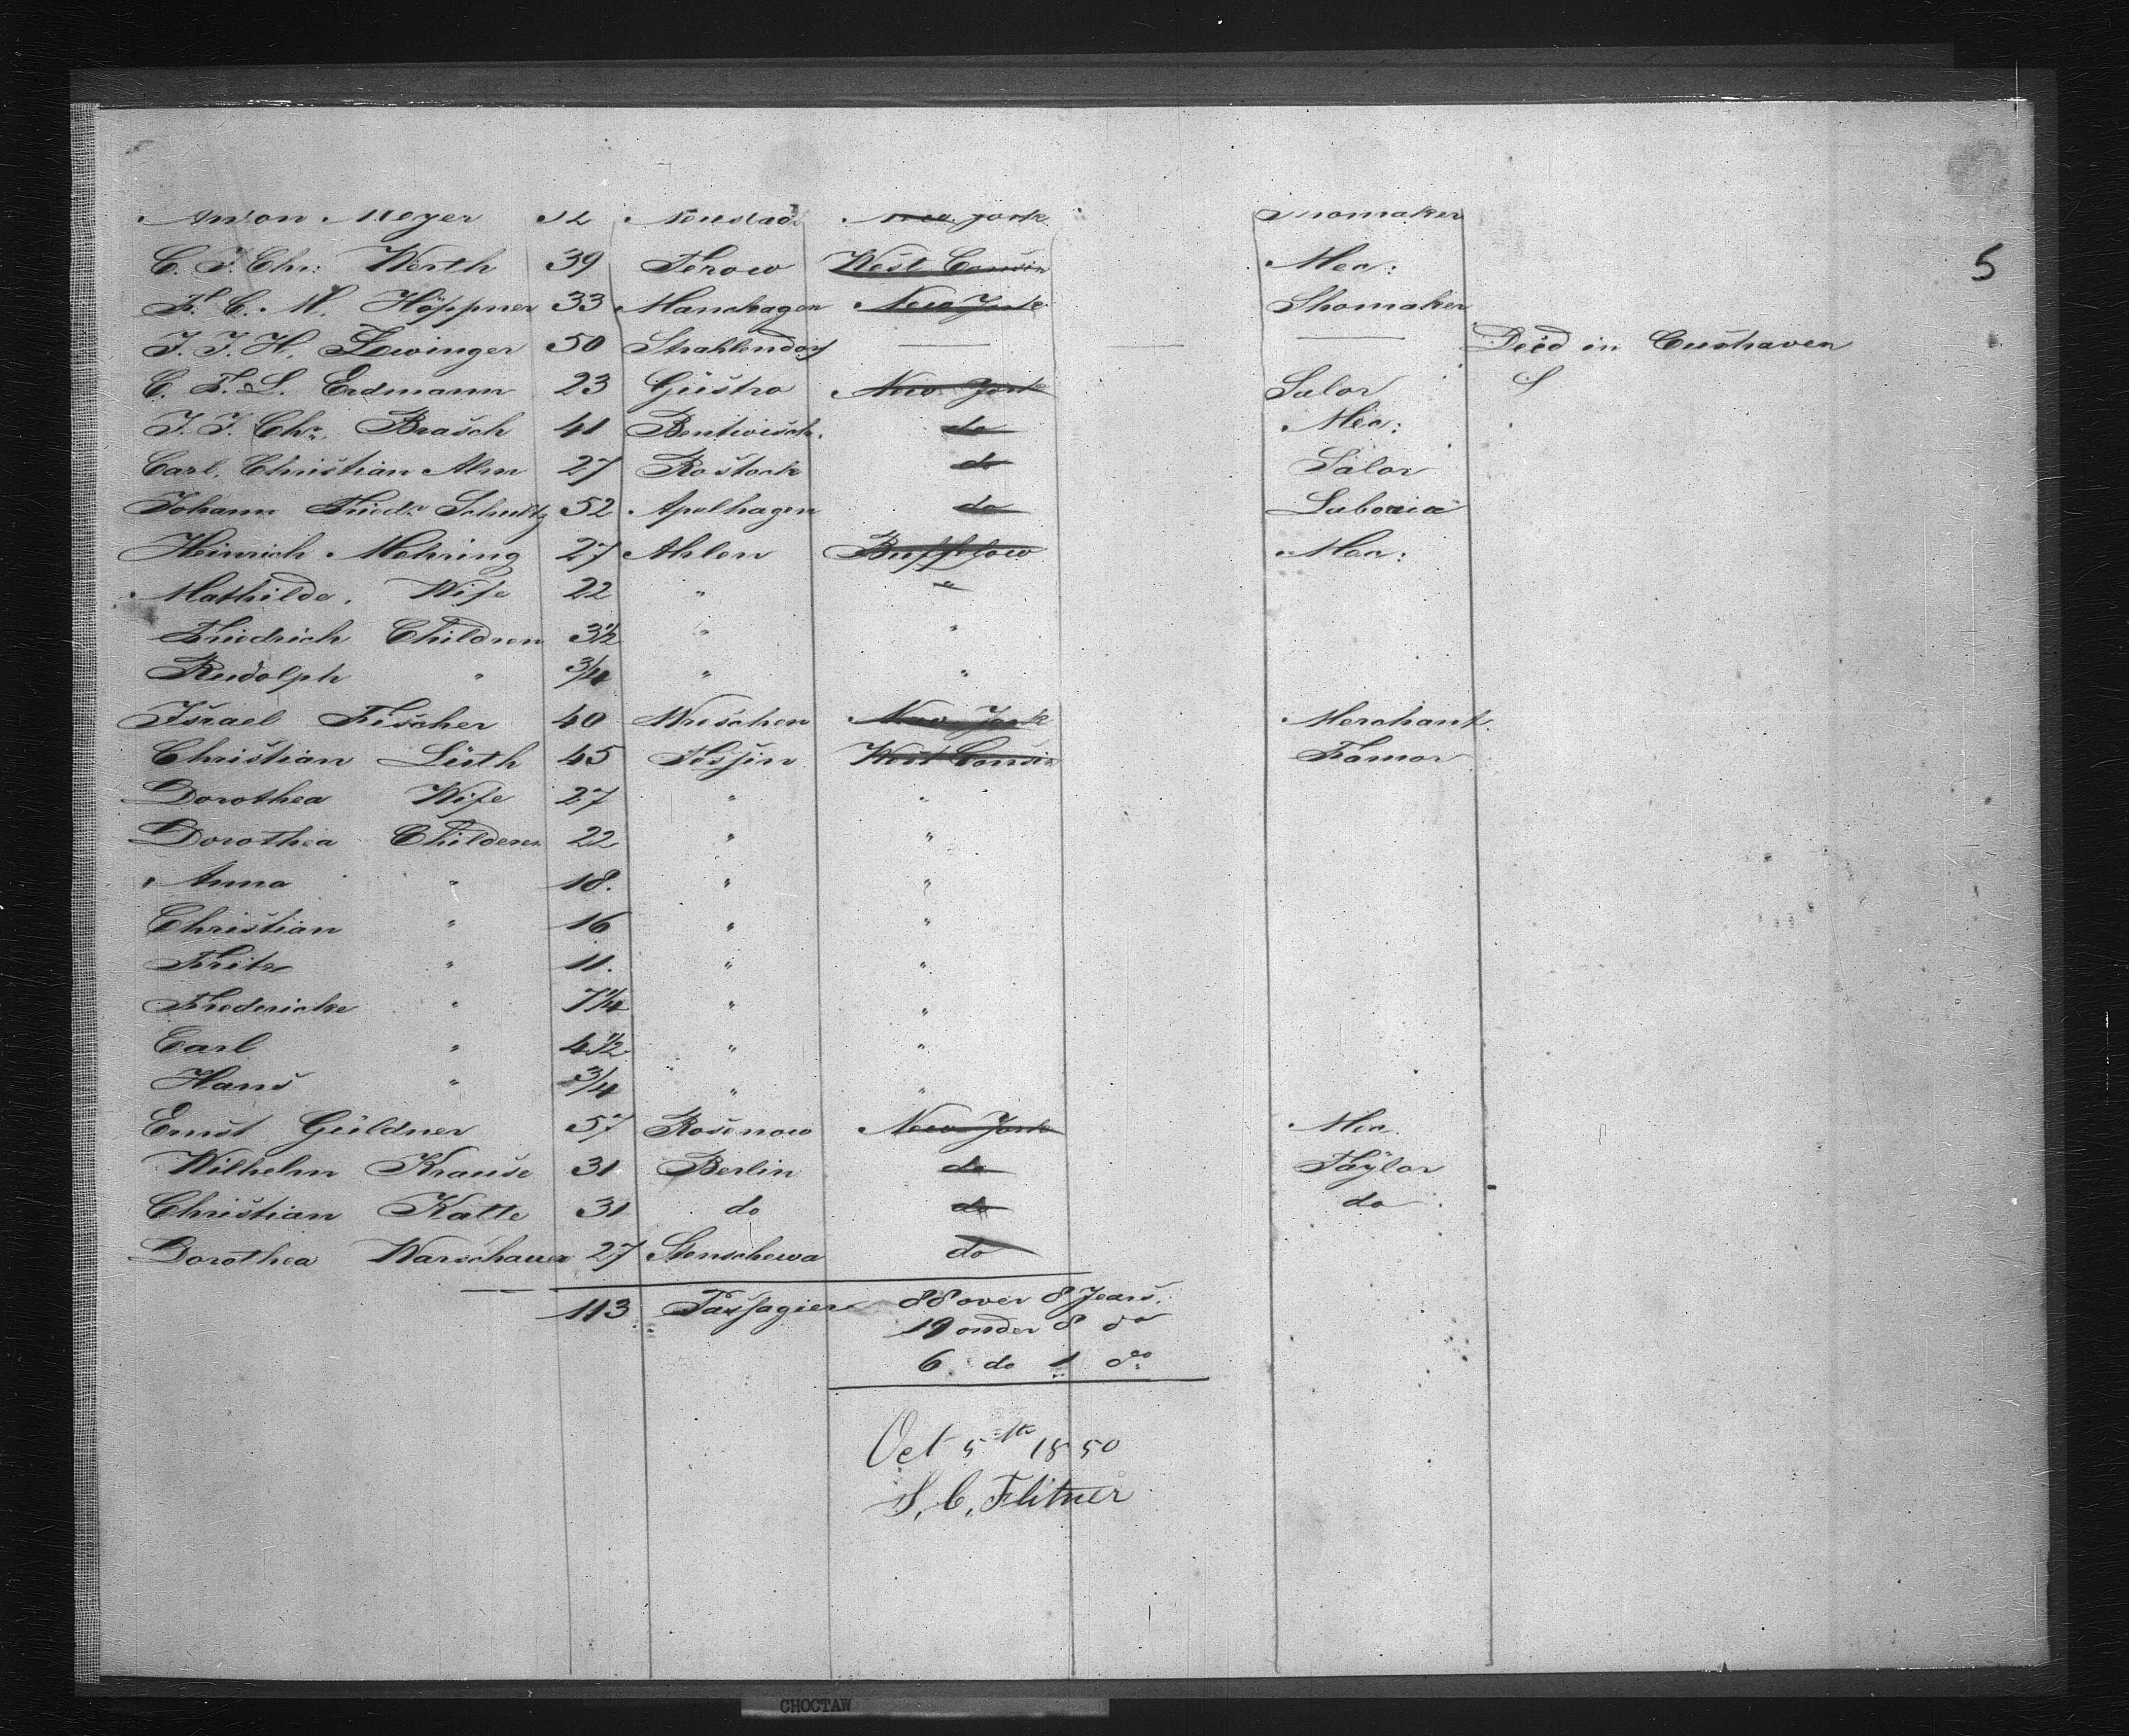 Anton Meyer 32 Neustadt New York Shomaker
C. F. Chr: Werth 39 Terow West Consin Mea: 5
F. C. M. Höppner 33 Manchagen New York Shomaker
J. J. H. Lewinger 50 Strahlendorf — — — Died in Cuxhaven
C. F. L. Erdmann 23 Güstro New York Salor
J. J. Chr. Brasch 41 Bentwisch. do Mea:
Carl. Christian Alm 27 Rostock do Salor
Johann Friedr Schultz 52 Apelhagen do
Heinrich Mehring 27 Ahlen Buffelow Mea:
Mathilde. Wife 22 " "
Friedrich Children 3 1/2 " "
Rudolph " 3/4 " "
Israel Fischer 40 Wreschen New York Merchant.
Christian Lüth 45 Tessin West Consin Famor
Dorothea Wife 27 " "
Dorothea Childeren 22 " "
Anna " 18. " "
Christian " 16 " "
Fritz " 11. " "
Fredericke " 7 1/4 " "
Carl " 4 1/2 " "
Hans " 3/4 " "
Ernst Güldner 57 Rosenow New York Mea.
Wilhelm Krause 31 Berlin do Taylor
Christian Katte 31 do do do
Dorothea Warschauer 27 Stenschewa do
113 Passagiere 88 over 8 Jears.
19 onder 8 do
6 do 1 do
Oct 5th 1850
S. C. Flitner
CHOCTAW